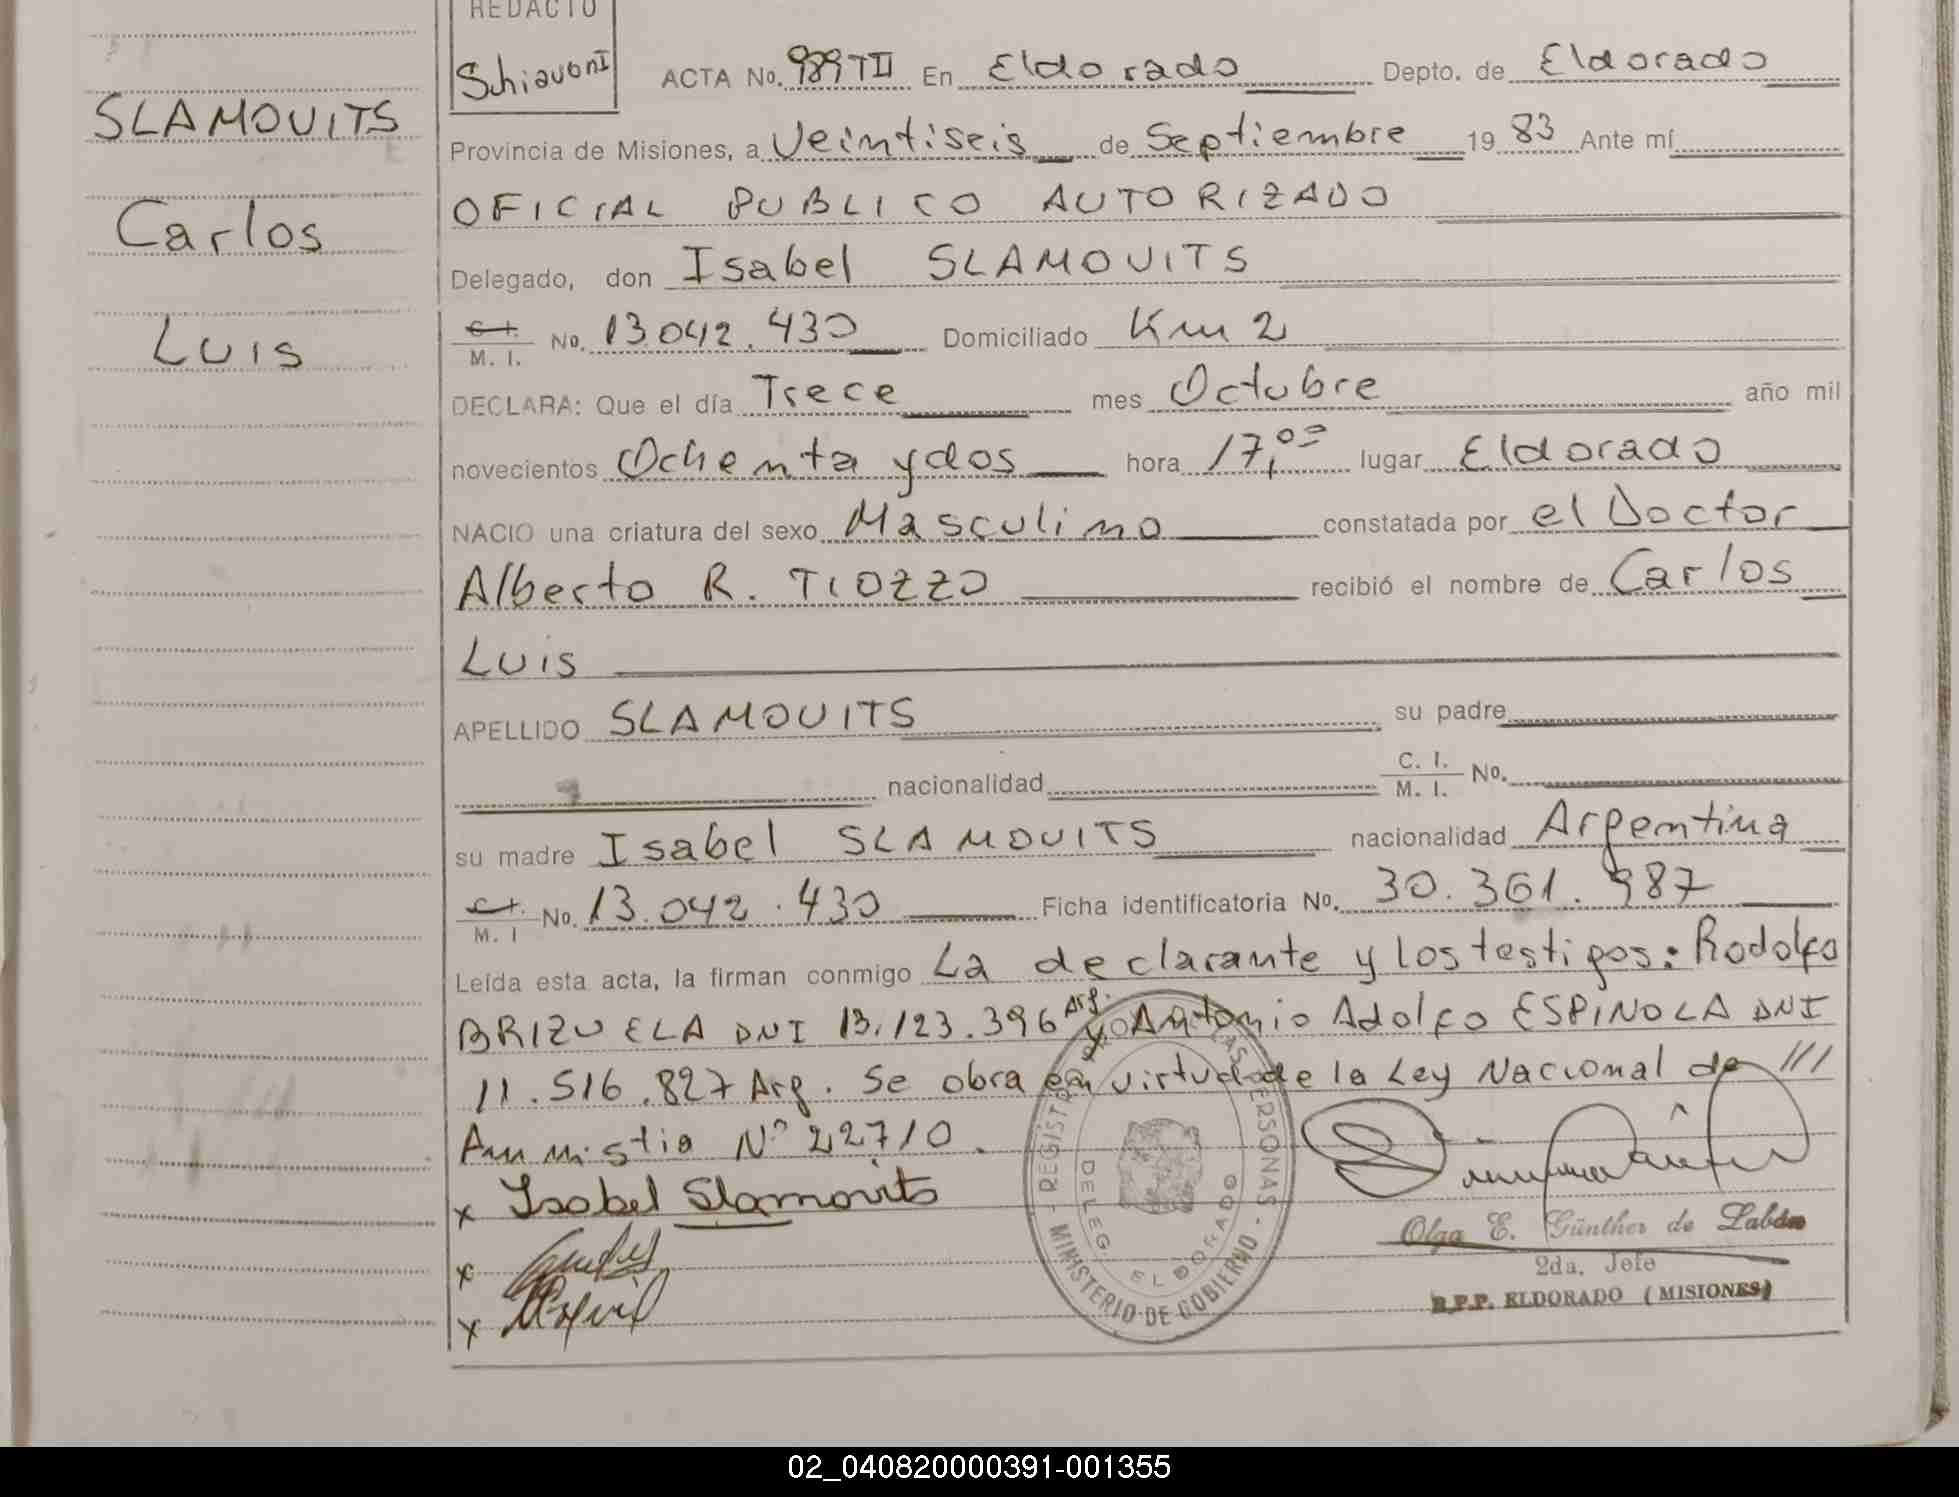 REDACTO
Schiavoni
SLAMOVITS
Carlos
Luis
ACTA No. 989 TII En Eldorado Depto. de Eldorado
Provincia de Misiones, a Veintiseis de Septiembre 1983 Ante mí
OFICIAL PUBLICO AUTORIZADO
Delegado, don Isabel SLAMOVITS
C.I. M. I. No. 13.042.430 Domiciliado Km 2
DECLARA: Que el día Trece mes Octubre año mil
novecientos Ochenta y dos hora 17,00 lugar Eldorado
NACIO una criatura del sexo Masculino constatada por el Doctor
Alberto R. TIOZZO recibió el nombre de Carlos
Luis
APELLIDO SLAMOVITS su padre
nacionalidad C. I. M. I. No.
su madre Isabel SLAMOVITS nacionalidad Argentina
C.I. M. I No. 13.042.430 Ficha identificatoria No. 30.361.987
Leída esta acta, la firman conmigo La declarante y los testigos: Rodolfo
BRIZUELA DNI 13.123.396 Arg. y Antonio Adolfo ESPINOLA DNI
11.516.827 Arg. Se obra en virtud de la Ley Nacional de ///
Amnistia Nº 22710.
x Isabel Slamovits
x
x
REGISTRO PROV. DE LAS PERSONAS - MINISTERIO DE GOBIERNO -
DELEG. ELDORADO
Olga E. Günther de
2da. Jefe
R.P.P. ELDORADO (MISIONES)
02_040820000391-001355